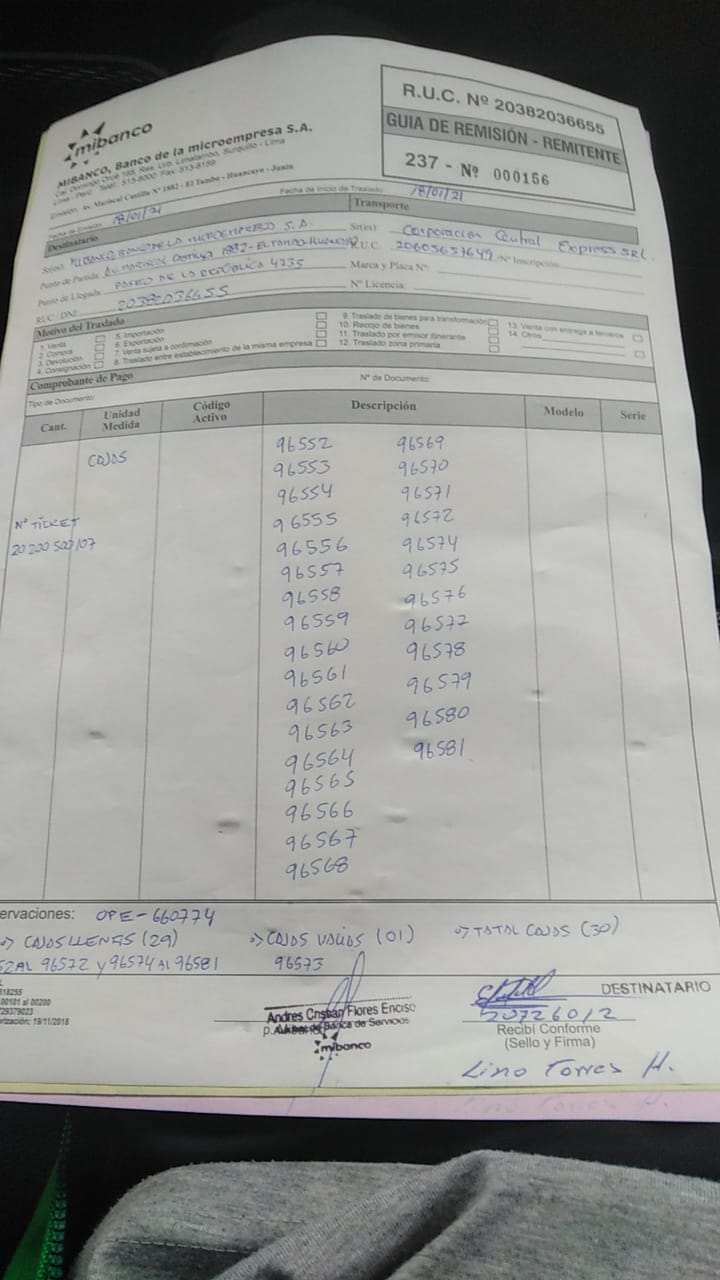 mibanco
MIBANCO, Banco de la microempresa S.A.
Cal. Domingo Orué 165, Res. Urb. Limatambo, Surquillo - Lima
Lima - Perú Telf: 513-8000 Fax: 513-8159
Emisión: Av. Mariscal Castilla N° 1882 - El Tambo - Huancayo - Junín
R.U.C. Nº 20382036655
GUIA DE REMISIÓN - REMITENTE
237 - Nº 000156
Fecha de Emisión: 18/01/21
Fecha de Inicio de Traslado: 18/01/21
Destinatario
Transporte
Sr(es): MIBANCO BANCO DE LA MICROEMPRESA S.A.
Sr(es): Corporación Central Express SRL.
Punto de Partida: AV. MARISCAL CASTILLA 1882 - EL TAMBO - HUANCAYO
R.U.C. 20605657649 Nº Inscripción:
Punto de Llegada: PASEO DE LA REPÚBLICA 4735
Marca y Placa Nº:
RUC / DNI: 20382036655
Nº Licencia:
Motivo del Traslado
1. Venta
2. Compra
3. Devolución
4. Consignación
5. Importación
6. Exportación
7. Venta sujeta a confirmación
8. Traslado entre establecimiento de la misma empresa
9. Traslado de bienes para transformación
10. Recojo de bienes
11. Traslado por emisor itinerante
12. Traslado zona primaria
13. Venta con entrega a terceros
14. Otros
Comprobante de Pago
Tipo de Documento:
Nº de Documento:
Cant. Unidad Medida Código Activo Descripción Modelo Serie
CAJAS
Nº TICKET
96552 96569
96553 96570
96554 96571
96555 96572
96556 96574
96557 96575
96558 96576
96559 96577
96560 96578
96561 96579
96562 96580
96563 96581
96564
96565
96566
96567
96568
ervaciones: OPE-660774
CAJAS LLENAS (29) CAJAS VACIAS (01) TOTAL CAJAS (30)
52 AL 96572 y 96574 AL 96581 96573
518255
00101 al 00200
729379023
orización: 19/11/2018
Andres Cristian Flores Enciso
Auxiliar de Banca de Servicios
mibanco
DESTINATARIO
20726012
Recibí Conforme
(Sello y Firma)
Lino Torres H.